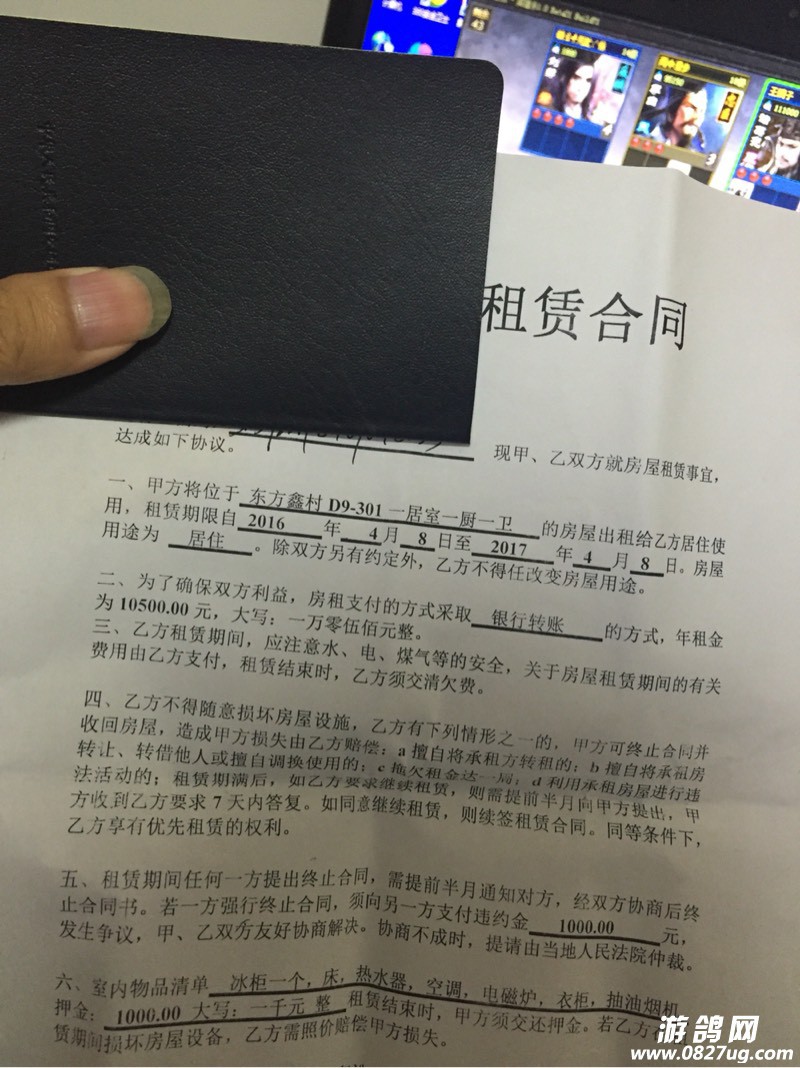 租赁合同
达成如下协议。
现甲、乙双方就房屋租赁事宜，
一、甲方将位于 东方鑫村 D9-301 一居室一厨一卫 的房屋出租给乙方居住使
用，租赁期限自 2016 年 4 月 8 日至 2017 年 4 月 8 日。房屋
用途为 居住 。除双方另有约定外，乙方不得任改变房屋用途。
二、为了确保双方利益，房租支付的方式采取 银行转账 的方式，年租金
为 10500.00 元，大写：一万零伍佰元整。
三、乙方租赁期间，应注意水、电、煤气等的安全，关于房屋租赁期间的有关
费用由乙方支付，租赁结束时，乙方须交清欠费。
四、乙方不得随意损坏房屋设施，乙方有下列情形之一的，甲方可终止合同并
收回房屋，造成甲方损失由乙方赔偿：a 擅自将承租方转租的；b 擅自将承租房
转让、转借他人或擅自调换使用的；c 拖欠租金达一周；d 利用承租房屋进行违
法活动的；租赁期满后，如乙方要求继续租赁，则需提前半月向甲方提出，甲
方收到乙方要求 7 天内答复。如同意继续租赁，则续签租赁合同。同等条件下，
乙方享有优先租赁的权利。
五、租赁期间任何一方提出终止合同，需提前半月通知对方，经双方协商后终
止合同书。若一方强行终止合同，须向另一方支付违约金 1000.00 元，
发生争议，甲、乙双方友好协商解决。协商不成时，提请由当地人民法院仲裁。
六、室内物品清单 冰柜一个，床，热水器，空调，电磁炉，衣柜，抽油烟机
押金：1000.00 大写：一千元 整 租赁结束时，甲方须交还押金。若乙方在
赁期间损坏房屋设备，乙方需照价赔偿甲方损失。
游鸽网
www.0827ug.com